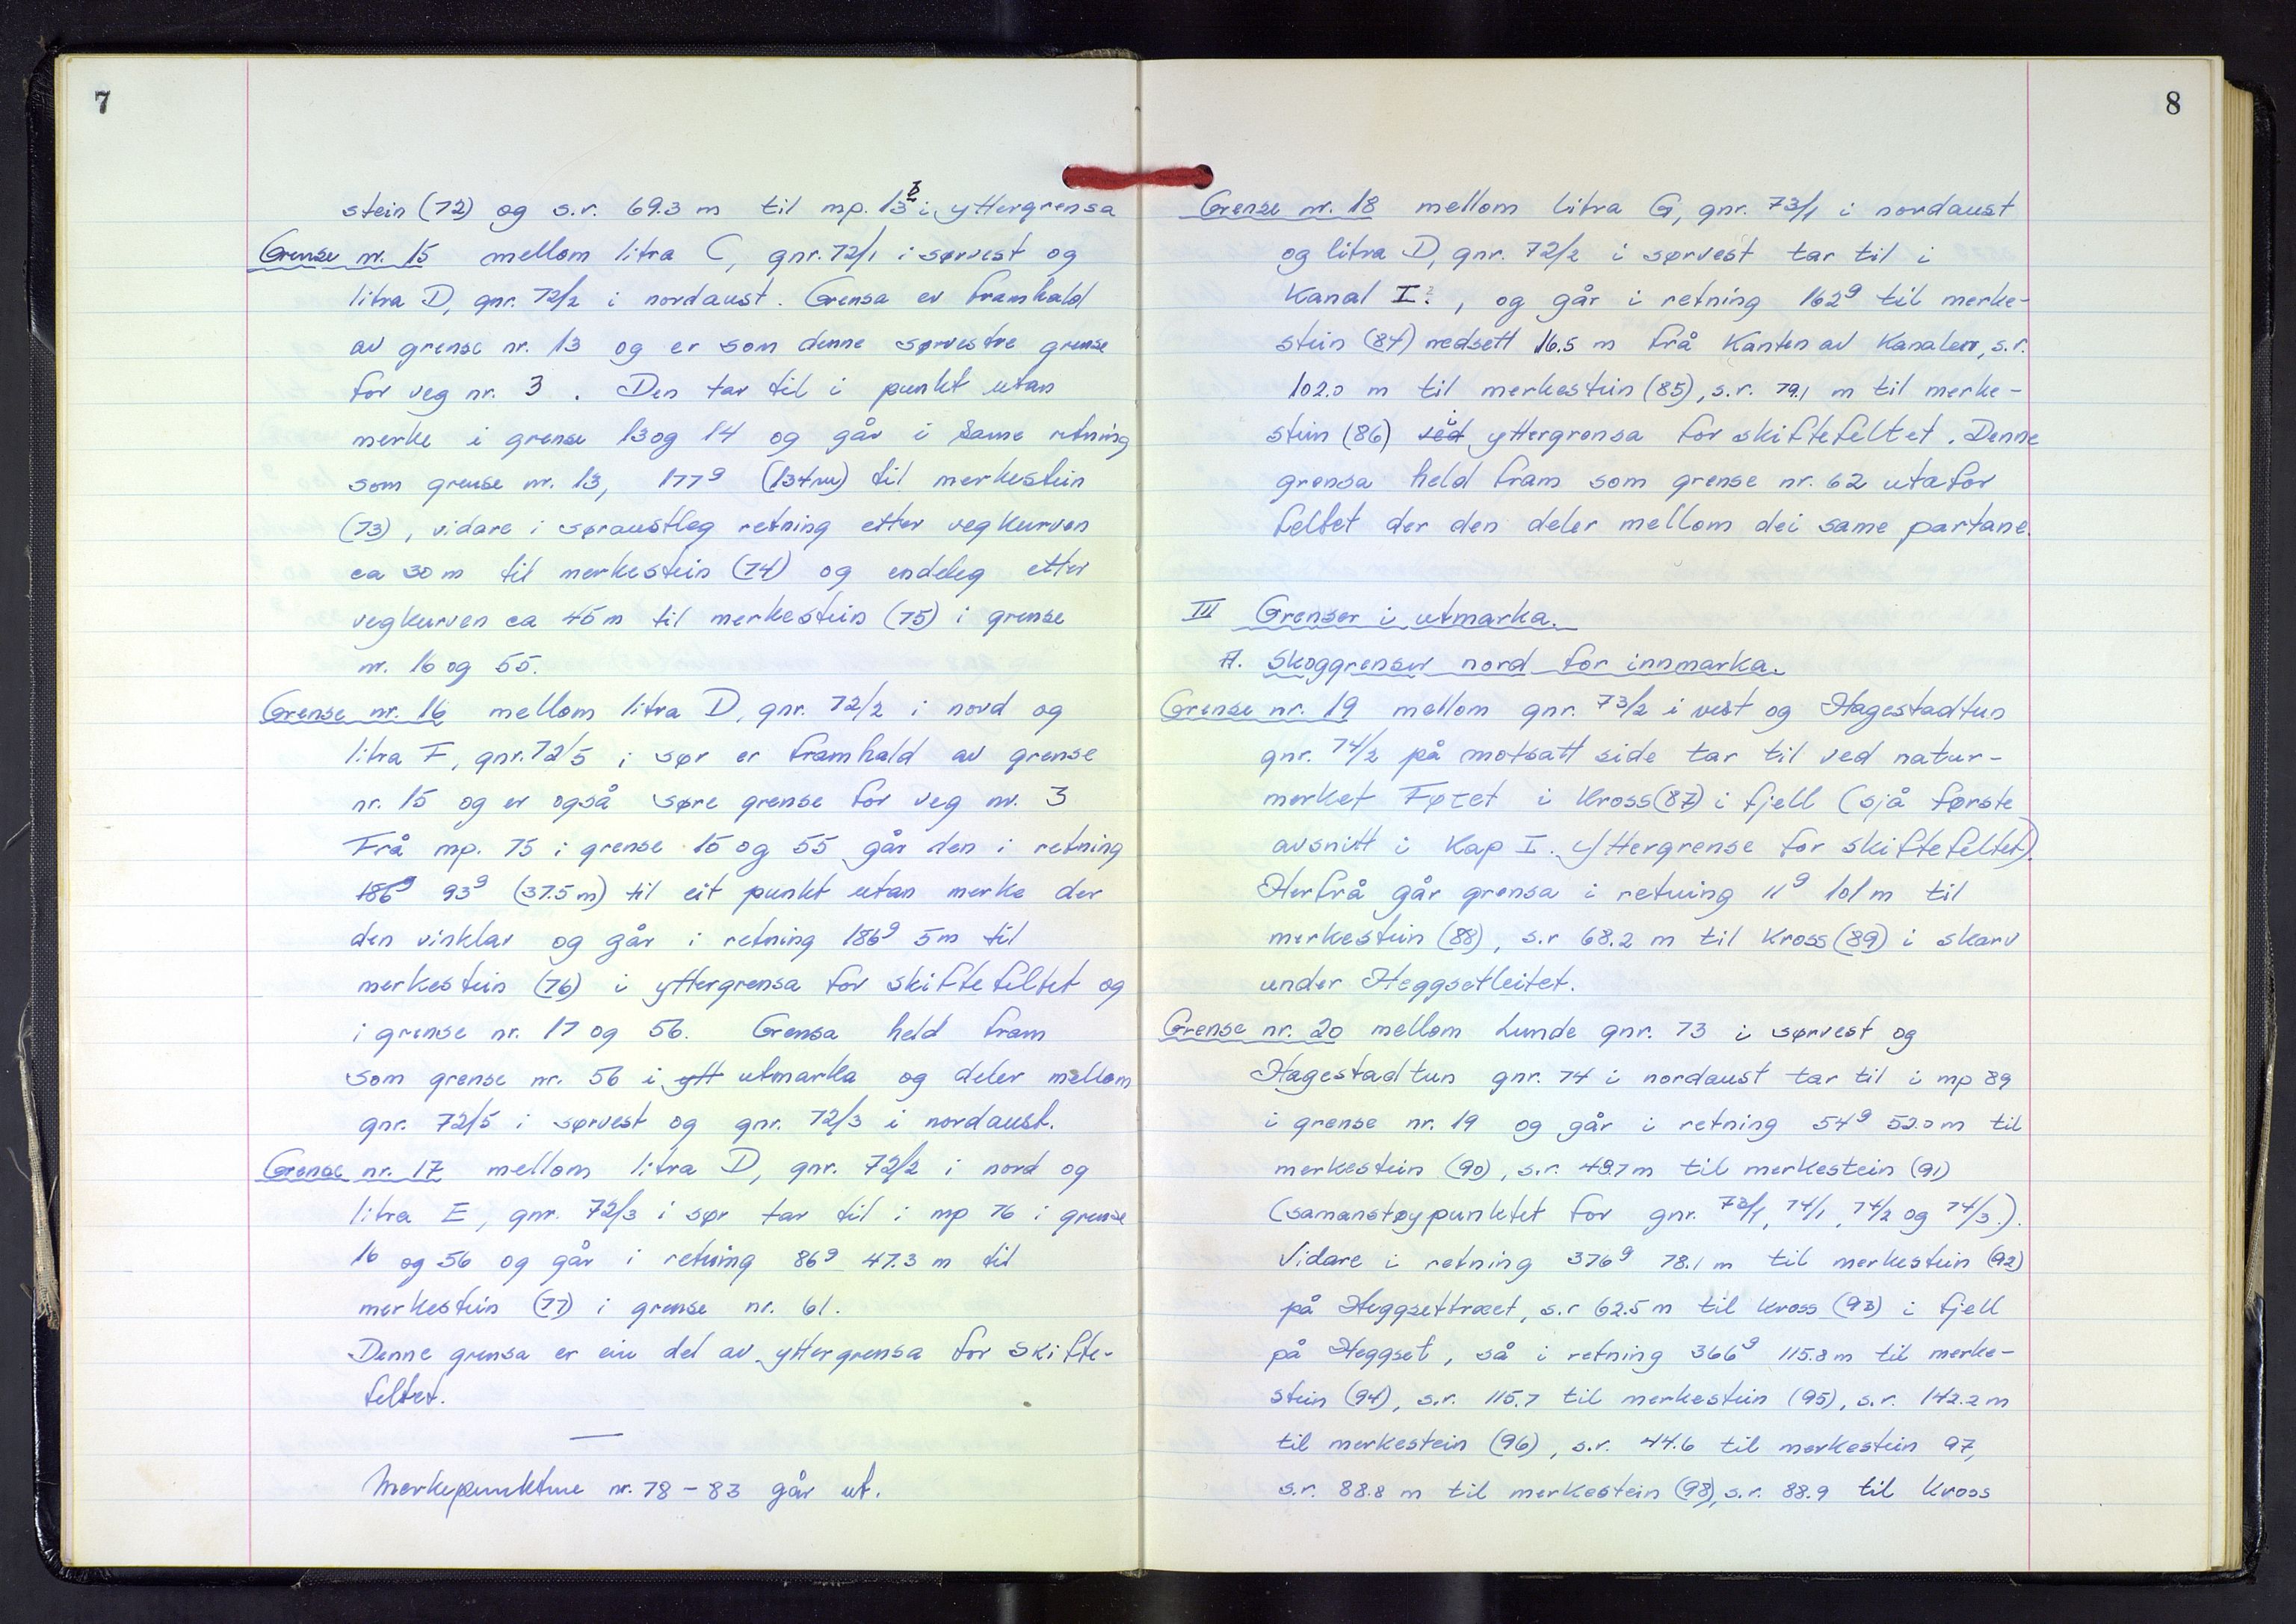 7
stein (72) og s.r. 69.3 m til mp. 13b i yttergrensa
Grense nr. 15 mellom litra C, gnr. 72/1 i sørvest og
litra D, gnr. 72/2 i nordaust. Grensa er framhald
av grense nr. 13 og er som denne sørvestre grense
for veg nr. 3 . Den tar til i punkt utan
merke i grense 13 og 14 og går i same retning
som grense nr. 13, 177g (134m) til merkestein
(73), vidare i søraustleg retning etter vegkurven
ca 30 m til merkestein (74) og endeleg etter
vegkurven ca 45 m til merkestein (75) i grense
nr. 16 og 55.
Grense nr. 16 mellom litra D, gnr. 72/2 i nord og
litra F, gnr. 72/5 i sør er framhald av grense
nr. 15 og er også søre grense for veg nr. 3
Frå mp. 75 i grense 15 og 55 går den i retning
186g 93g (37.5 m) til eit punkt utan merke der
den vinklar og går i retning 186g 5m til
merkestein (76) i yttergrensa for skiftefeltet og
i grense nr. 17 og 56. Grensa held fram
som grense nr. 56 i ytt utmarka og deler mellom
gnr. 72/5 i sørvest og gnr. 72/3 i nordaust.
Grense nr. 17 mellom litra D, gnr. 72/2 i nord og
litra E, gnr. 72/3 i sør tar til i mp 76 i grense
16 og 56 og går i retning 86g 47.3 m til
merkestein (77) i grense nr. 61.
Denne grensa er ein del av yttergrensa for skifte-
feltet.
Merkepunktene nr. 78 - 83 går ut.
8
Grense nr. 18 mellom litra G, gnr. 73/1 i nordaust
og litra D, gnr. 72/2 i sørvest tar til i
Kanal I. , og går i retning 162g til merke-
stein (84) nedsett 16.5 m frå Kanten av Kanalen, s.r.
102.0 m til merkestein (85), s.r. 79.1 m til merke-
stein (86) ved i yttergrensa for skiftefeltet. Denne
grensa held fram som grense nr. 62 utafor
feltet der den deler mellom dei same partane.
III Grenser i utmarka.
A. Skoggrenser nord for innmarka.
Grense nr. 19 mellom gnr. 73/2 i vest og Hagestadtun
gnr. 74/2 på motsatt side tar til ved natur-
merket Føtet i Kross (87) i fjell (sjå første
avsnitt i Kap I. Yttergrense for skiftefeltet).
Herfrå går grensa i retning 11g 101 m til
merkestein (88), s.r 68.2 m til Kross (89) i skarv
under Heggsetleitet.
Grense nr. 20 mellom Lunde gnr. 73 i sørvest og
Hagestadtun gnr. 74 i nordaust tar til i mp 89
i grense nr. 19 og går i retning 54g 52.0 m til
merkestein (90), s.r. 49.7 m til merkestein (91)
(samanstøypunktet for gnr. 73/1, 74/1, 74/2 og 74/3.).
Vidare i retning 376g 78.1 m til merkestein (92)
på Heggsettræet, s.r 62.5 m til kross (93) i fjell
på Heggset, så i retning 366g 115.8 m til merke-
stein (94), s.r. 115.7 til merkestein (95), s.r. 142.2 m
til merkestein (96), s.r. 44.6 til merkestein 97,
s.r. 88.8 m til merkestein (98), s.r. 88.9 til Kross